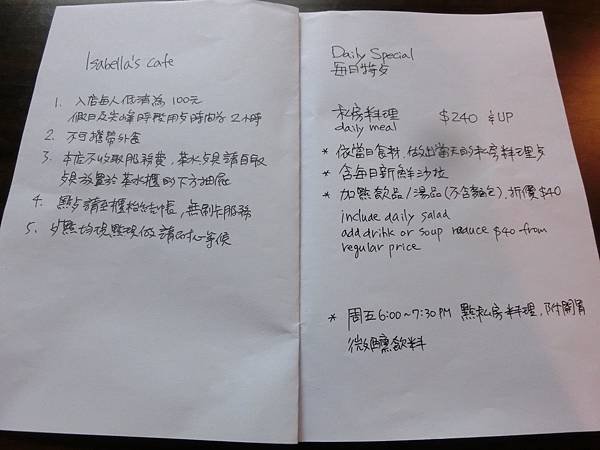 Isabella's Cafe
1. 入店每人低消為 100元
假日及尖峰時段用歺時間為 2小時
2. 不可攜帶外食
3. 本店不收取服務費，茶水歺具請自取
歺具放置於茶水櫃的下方抽屜
4. 點歺請至櫃枱結帳，無刷卡服務
5. 歺點均現點現做請耐心等候
Daily Special
每日特歺
私房料理 $240 &UP
daily meal
* 依當日食料，做出當天的私房料理歺
* 含每日新鮮沙拉
* 加點飲品/湯品(不含麵包)，折價$40
include daily salad
add drink or soup reduce $40 from
regular price
* 周五 6:00~7:30 PM 點私房料理，附開胃
微醺飲料